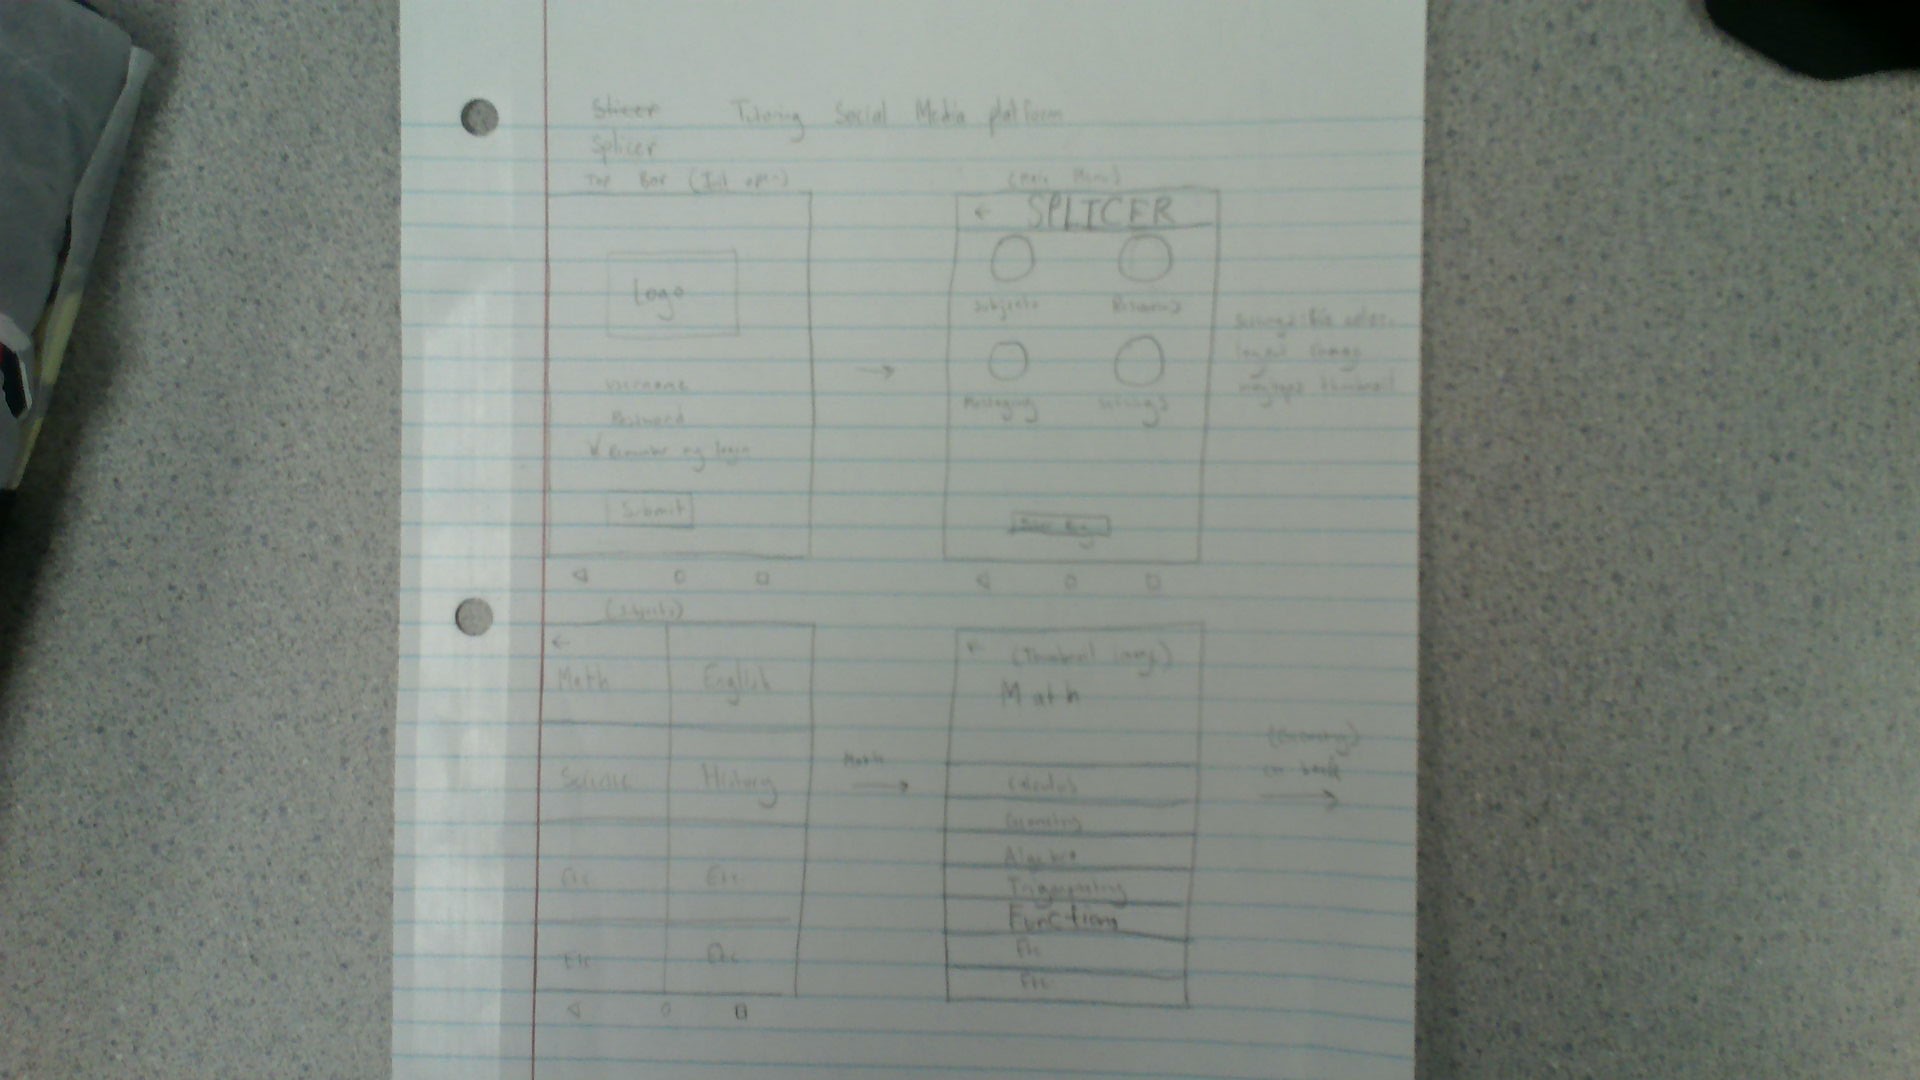 Slicer Tutoring Social Media platform
Splicer
Top Bar (Init open)
Logo
username
Password
Remember my login
Submit
(Main Menu)
← SPLICER
Subjects
Messaging Settings
(Subjects)
←
Math English
Science History
Etc Etc
Etc Etc
Math
→
← (Thumbnail image)
Math
Calculus
Geometry
Algebra
Trigonometry
Functions
Etc
Etc
(Geometry)
on back
→